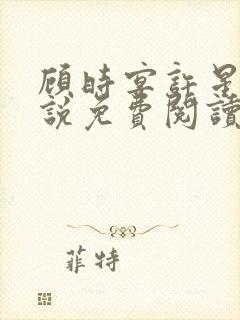 顾时宴許是
說免費閱讀
菲特